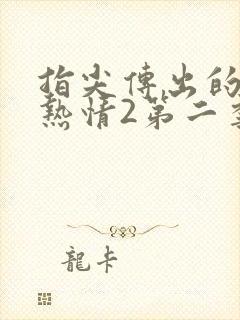 指尖傳出的
熱情2第二季
龍卡